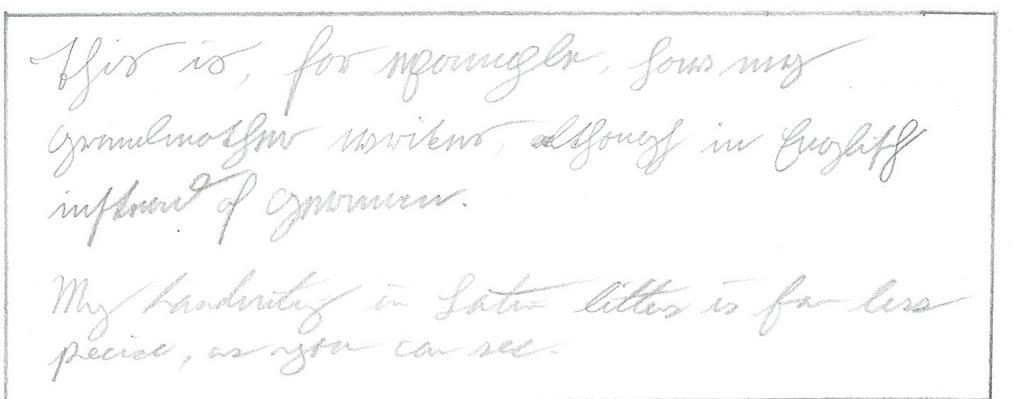 This is, for example, how my
grandmother writes, although in English
instead of German.
My handwriting in Latin letters is far less
precise, as you can see.